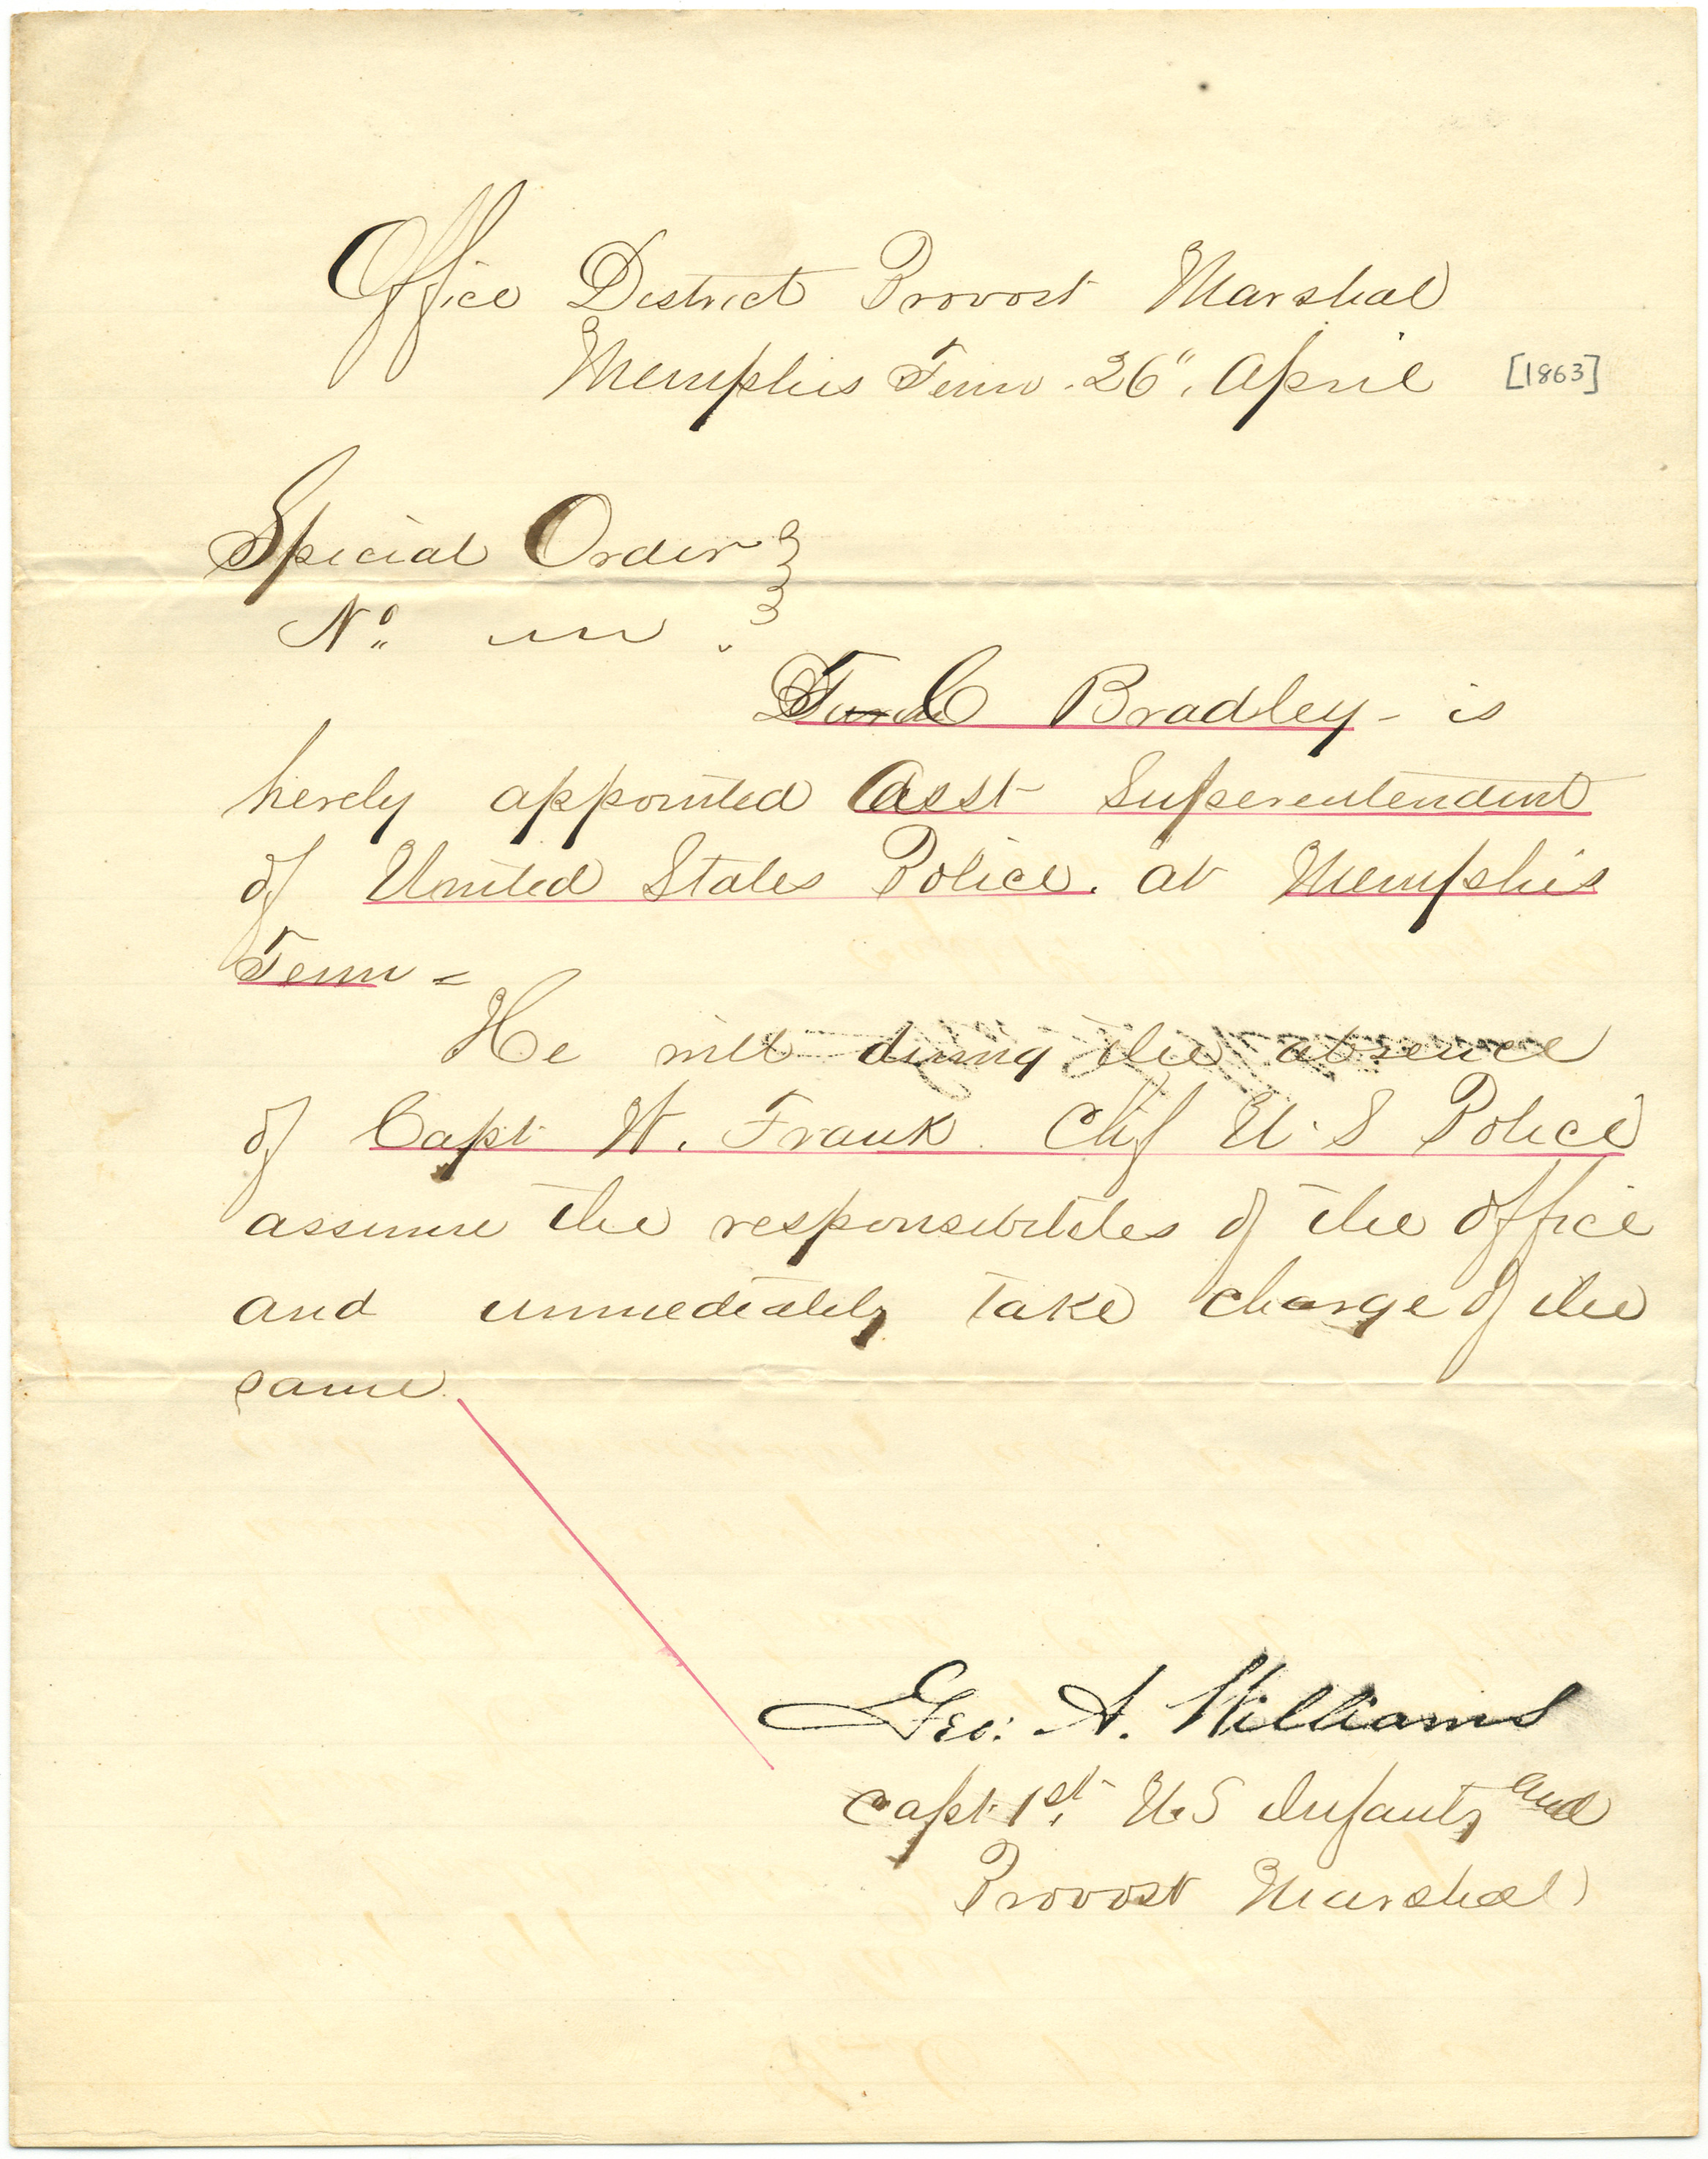 Office District Provost Marshal
Memphis Tenn. 26", April [1863]
Special Order
No.
C Bradley - is
herely appointed Asst Superentendent
of United States Police. at Memphis
Tenn =
He will during the absence
of Capt W. Frank Chf U.S Police
assume the responsibilites of the office
and immediately take charge of the
same.
Geo: A. Williams
Capt. 1st. U.S Infanty and
Provost Marshal